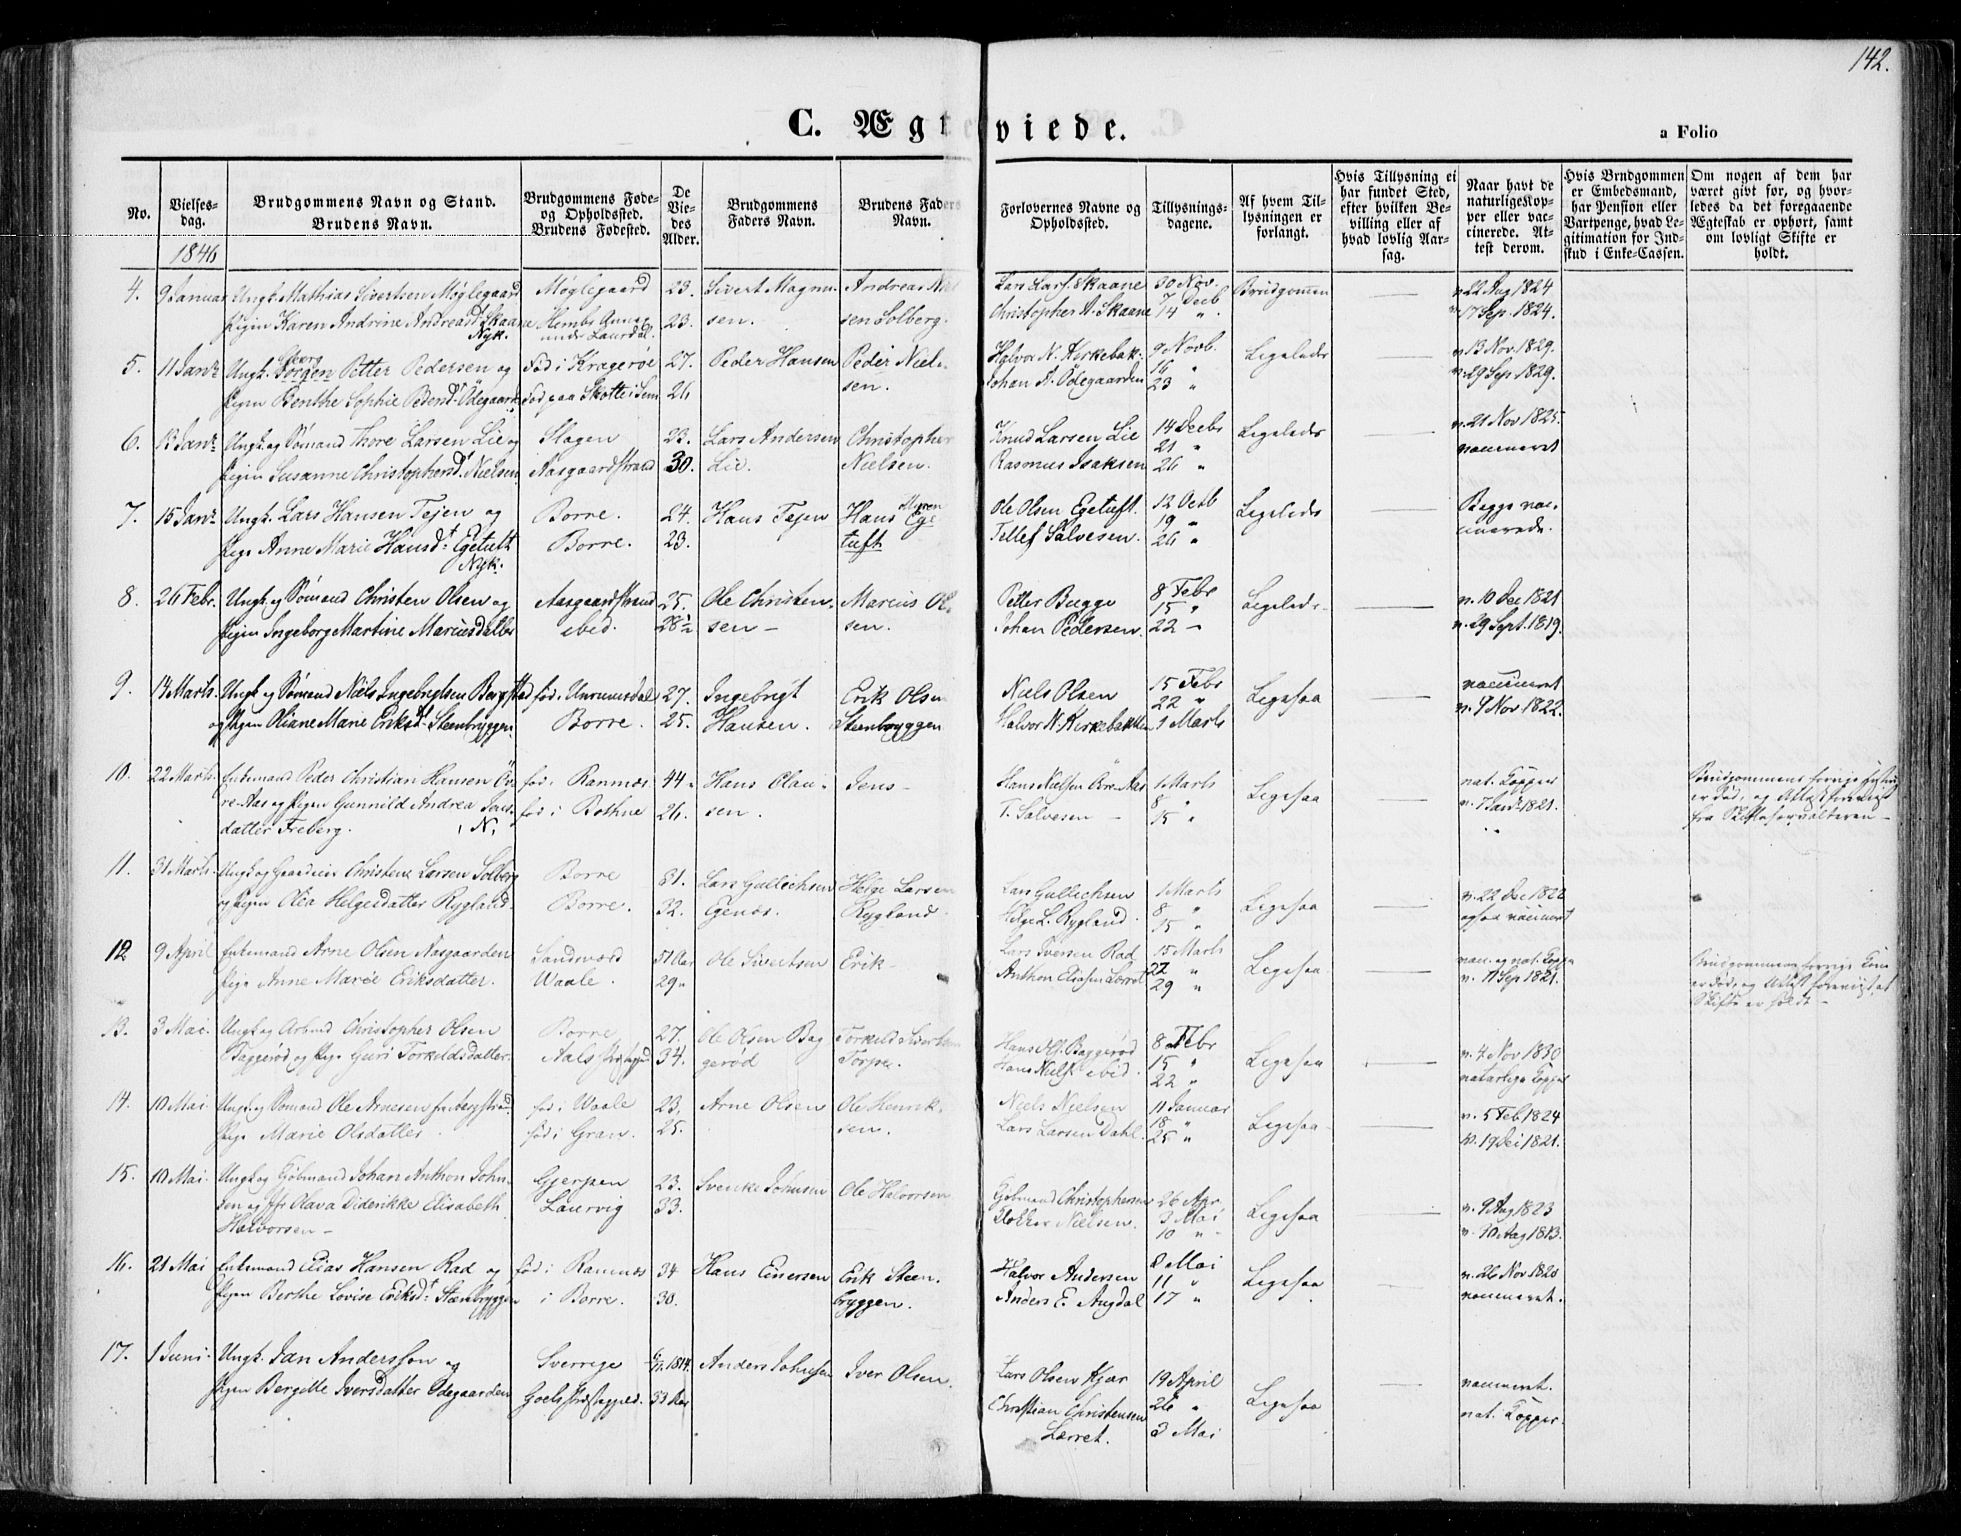 142.
C. Ægteviede.
a Folio
No.
Vielsesdag.
Brudgommens Navn og Stand.
Brudens Navn.
Brudgommens Føde- og Opholdssted.
Brudens Fødested.
De Viedes Alder.
Brudgommens Faders Navn.
Brudens Faders Navn.
Forlovernes Navne og Opholdssted.
Tillysningsdagene.
Af hvem Tillysningen er forlangt.
Hvis Tillysning ei har fundet Sted, efter hvilken Bevilling eller af hvad lovlig Aarsag.
Naar havt de naturlige Kopper eller vaccinerede. Attest derom.
Hvis Brudgommen er Embedsmand, har Pension eller Vartpenge, hvad Legitimation for Indskud i Enke-Cassen.
Om nogen af dem har været gift før, og hvorledes da det foregaaende Ægteskab er ophørt, samt om lovligt Skifte er holdt.
1846
4. 9 Januar Ungk. Mathias Sivertsen Møglegaard Møglegaard 23. Sivert Magnu- Andrea Niel Lars Larss. Skaane 30 Nov. Brudgomen v. 22 Aug 1824
Pigen Karen Andrine Andreasd. Skaane 23. sen. sen Solberg. Christopher A. Skaane 7 Decb 14 " v. 17 Sep. 1824.
Nyk. under Laurdal.
5. 11 Janr Ungk. Jørgen Georg Petter Pedersen og Fød i Kragerøe 27. Peder Hansen Peder Niel- Halvor N. Kirkebak. 9 Novb. Ligeleds v. 13 Nov. 1829.
Pigen Benthe Sophie Pedersd. Ødegaard Fød paa Skotte i Sem 26 sen. Johan A. Ødegaarden 16 " 23 " v. 29 Sep 1829.
6. 13 Janr Ungk. og Sømand Thore Larsen Lie og Slagen 23. Lars Andersen Christopher Knud Larsen Lie 14 Decbr Ligeleds v. 21 Nov 1825.
Pigen Susanne Christophersd. Nielsen Aasgaardstrand 30. Lie. Nielsen. Rasmus Isaksen 21 " 26 " vaccineret
7. 15 Janr Ungk. Lars Hansen Fejen og Borre. 24. Hans Fejen Hans Ege Ole Olsen Egetuft. 12 Octb Ligeleds Begge vac-
Pige Anne Marie Hansd. Egetuft Borre. 23. tuft Tellef Salvesen. 19 " 26 " cinerede.
Nyk.
8. 26 Febr. Ungk. og Sømand Christen Olsen og Aasgaardstrand 25. Ole Christen- Marcus Ol- Petter Bugge 8 Febr Ligeleds v. 10 Dec 1821
Pigen Ingeborg Martine Marcusdatter ibid. 28½ sen - sen. Johan Pedersen. 15 " 22 " v. 29 Sept. 1819.
9. 14 Marts. Ungk og Sømand Niels Ingebrigtsen Bergsted fød i 27. Ingebrigt Erik Olsen Niels Olsen 15 Febr Ligesaa vaccineret
og Pigen Oliane Marie Eriksd. Steenbryggen Borre. 25. Hansen. Steenbryggen Halvor N. Kirkebakken 22 " 1 Marts v. 9 Nov 1822.
10. 22 Marts. Enkemand Peder Christian Hansen Öv- fød i Ramnes 44 " Hans Olau- Jens - Hans Nielsen Övre Aas 1 Marts Ligesaa nat. Kopper Brudgommens forrige Hustru
re Aas og Pigen Gunnild Andrea Jens- fød i Bothne 26. sen. T. Salvesen 8 " 15 " v. 7 Janr 1821. er død, og Attest forevist
datter Freberg. N. fra Skifteforvalteren -
11. 31 Marts. Ungk og Gaardeier Christen Larsen Solberg Borre 31. Lars Gullichsen Helge Larsen Lars Gullichsen 1 Marts Ligesaa v. 22 Dec 1822
og Pigen Olia Helgesdatter Rygland. Borre. 32. Egenæs. Rygland. Helge L. Rygland. 8 " 15 " ogsaa vaccineret
12 9 April Enkemand Arne Olsen Aasgaarden Sandeværd 51 Aar Ole Sivertsen Erik - Lars Iversen Rad 15 Marts Ligesaa vacc. og nat. Kopper Brudgommens forrige Kone
Pige Anne Marie Eriksdatter. Waale. 29 " Anthon Eliasen Lorret 22 " 29 " v. 11 Sep 1821. er død, og Attest forevist at
Skifte er holdt -
13. 3 Mai. Ungk og Arbmd Christopher Olsen Borre 27. Ole Olsen Bag Torkild Sivertsen Hans Ols. Baggerød 8 Febr Ligesaa v. 4 Nov 1830
Baggerød og Pige Guri Torkeldsdatter. Aals Præstegjeld 34. gerød Torpe. Hans Niels. ibid. 15 " 22 " naturlige Kopper
14. 10 Mai Ungk og Sømand Ole Arnesen fra Aasgstrand fød i Waale 23. Arne Olsen Ole Henrik- Niels Nielsen 11 Januar Ligesaa v. 5 Feb 1824
Pige Marie Olsdatter. fød i Gran. 25. sen. Lars Larsen Dahl. 18 " 25 " v. 19 Dec 1821.
15. 10 Mai. Ungk og Kjøbmand Johan Anthon John- Gjerpen 23. Svenke Johnsen Ole Halvorsen Kjøbmand Christophersen 26 Apr Ligesaa v. 9 Aug 1823
sen og Jfr. Olava Diderikke Elisabeth Laurvig 33. Klokker Nielsen. 3 Mai 10 " v. 10 Aug 1813.
Halvorsen -
16. 21 Mai Enkemand Elias Hansen Rad og fød i Ramnes 34 Hans Einersen Erik Steen- Halvor Andersen 8 Mai Ligesaa v. 26 Nov 1820
Pigen Berthe Lovise Eriksd. Steenbryggen i Borre. 30. bryggen. Anders E. Augdal 11 " 17 " vaccineret.
17. 1 Juni. Ungk. Jan Andersson og Sverrige 1814. Anders Johnsen Iver Olsen. Lars Olsen Kjær 19 April Ligesaa vaccineret.
Pigen Bergitte Iversdatter Ødegaarden Goels Præstegjeld. 33 Aar Christian Christensen 26 " nat. Kopper.
Lorret. 3 Mai